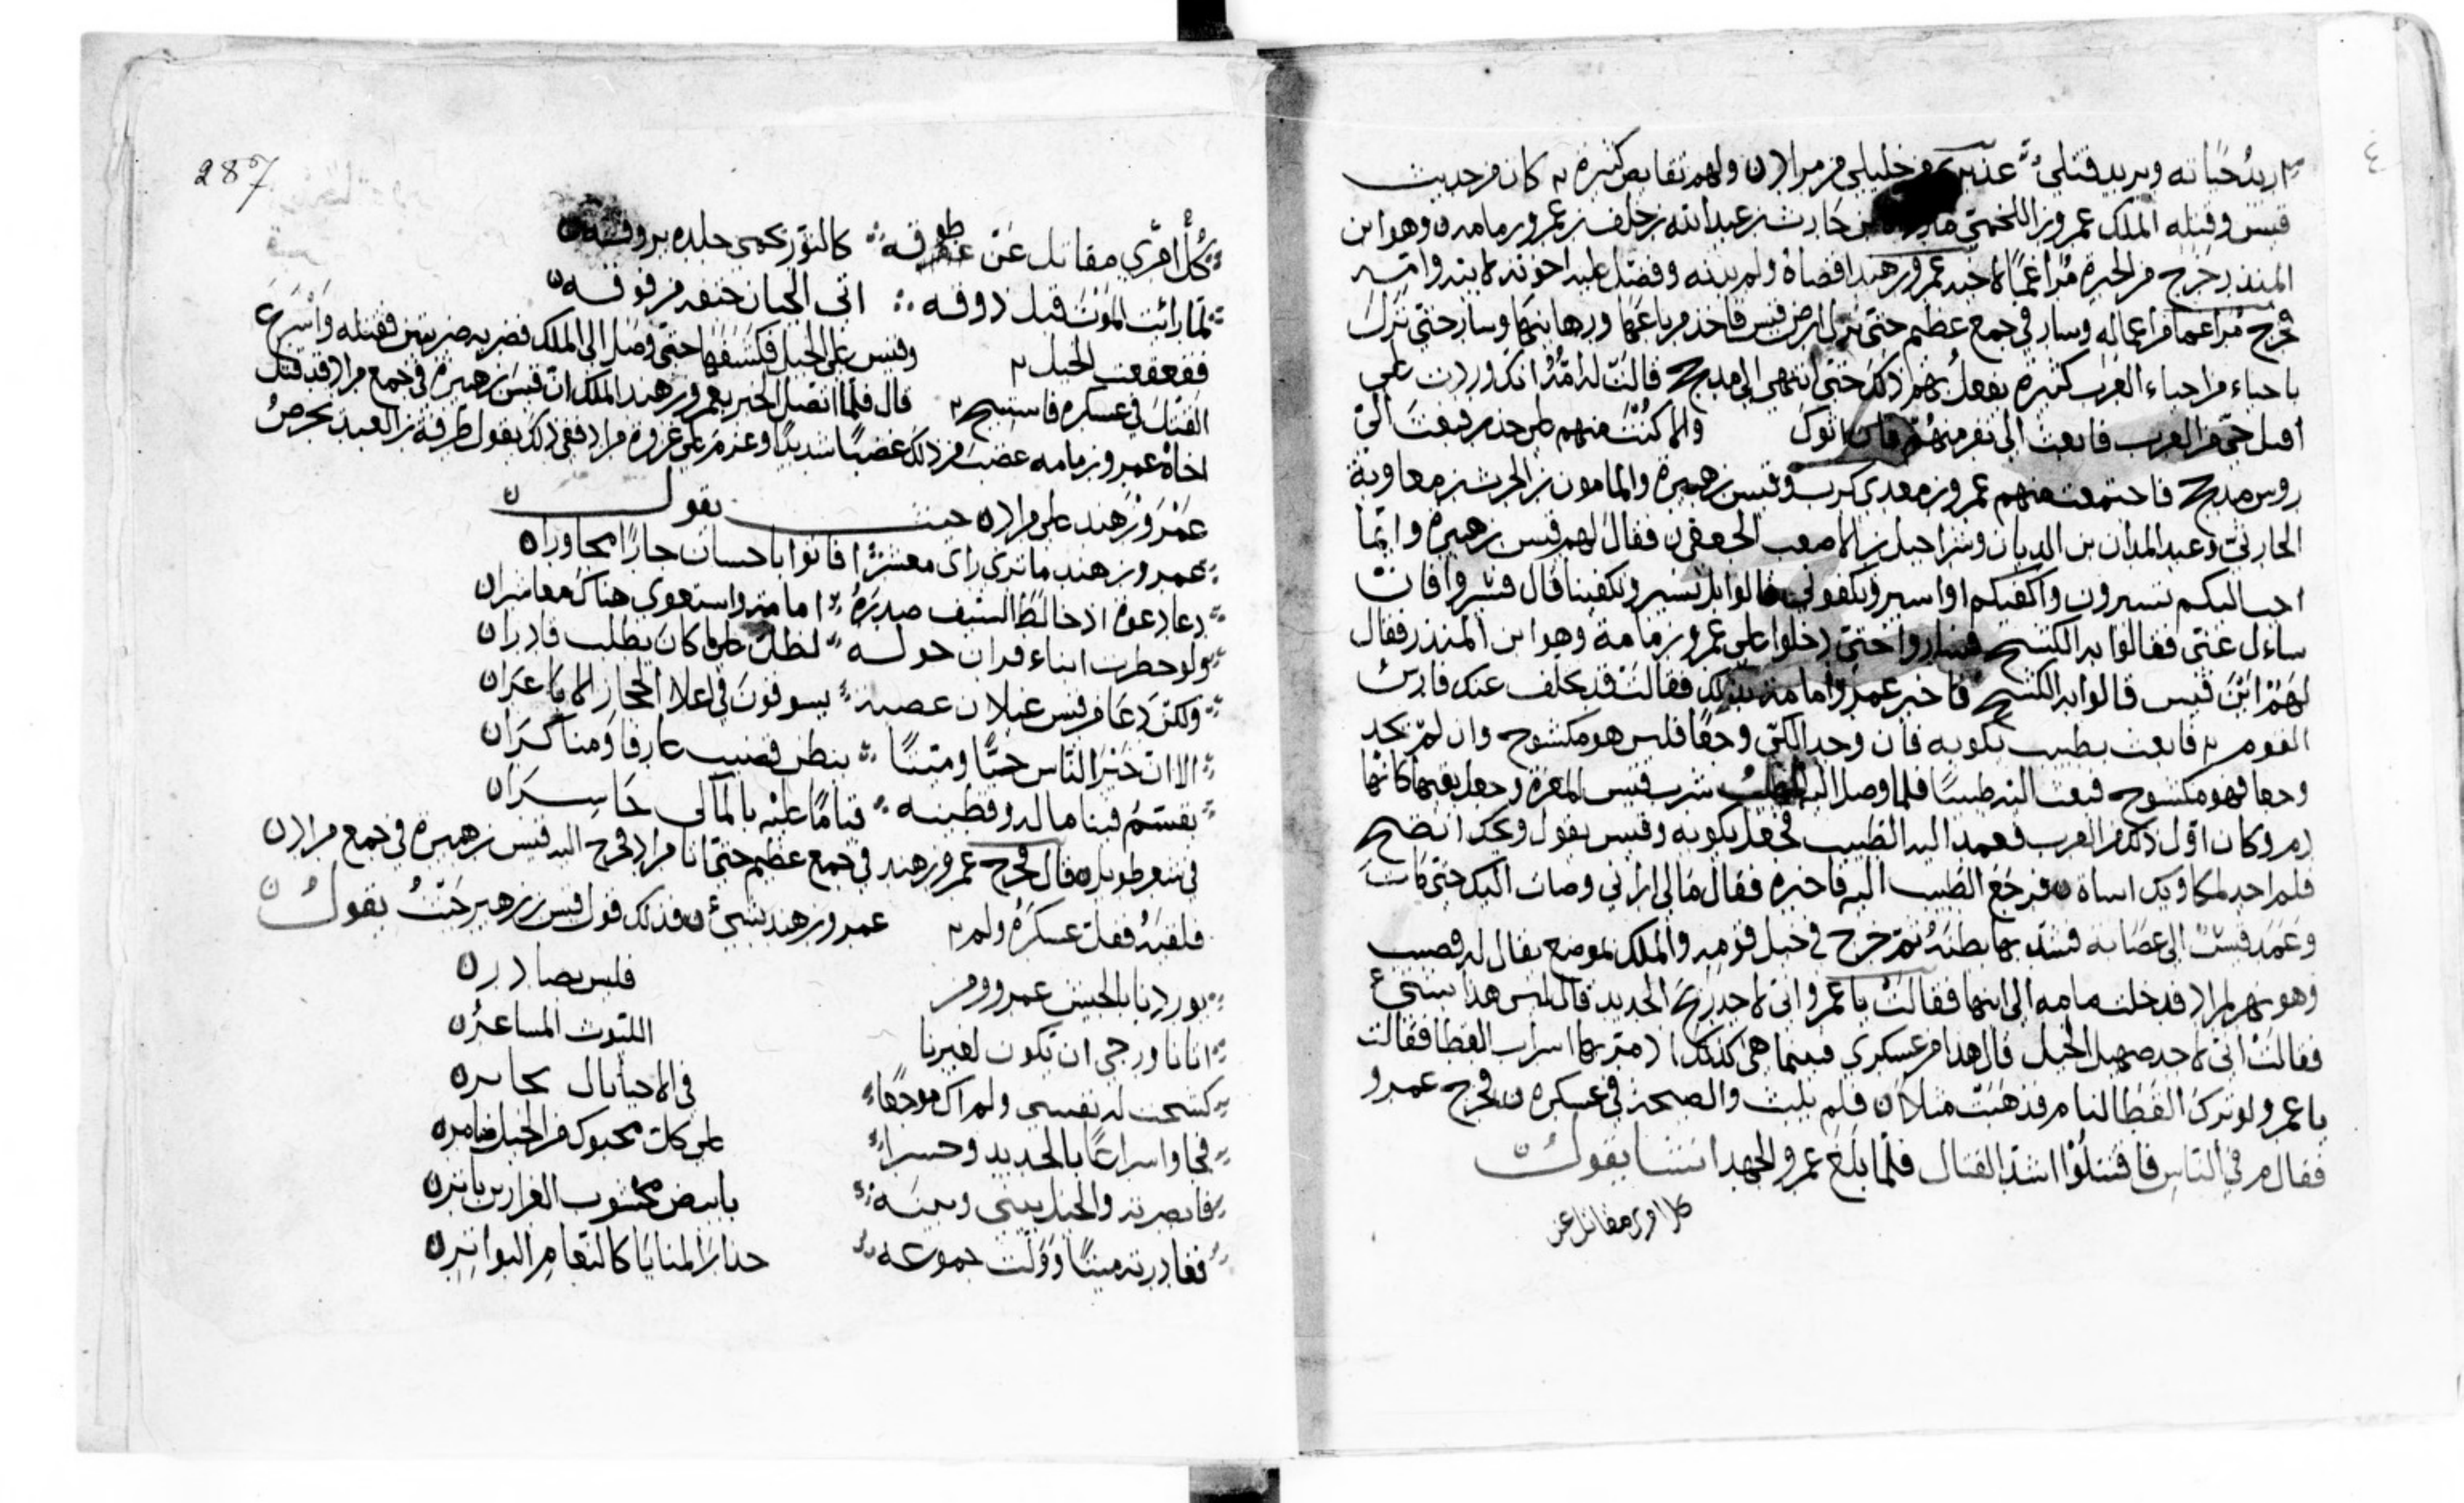 اريد حياته ويريد قتلي عذيرك من خليلي من مراد ولهم نقايض كثيرة كان من حديث
قيس وقتله الملك عمرو بن اللخمي بن حارث بن عبد الله بن خلف بن عمرو بن مامه وهو ابن
المنذر خرج من الحيرة مراغما لاخيه عمرو بن هند اقصاه ولم يدنه وفضل عليه اخوته لابيه وامه
فخرج مراغما من اعماله وسار في جمع عظيم حتى نزل ارض قيس فاخذ مرباعها ورهاينها وسار حتى نزل
باحياء من احياء العرب كثيرة يفعل بهم ذلك حتى انتهى الى مذحج قالت له امه انك وردت على
اقبل حي من العرب فابعث الى نفر منهم فان اتوك والا كنت منهم على حذر فبعث الى
روس مذحج فاجتمعت منهم عمرو بن معدي كرب وقيس بن هبيرة والمامون بن الحرث بن معاوية
الحارثي وعبد المدان بن الديان وشراحيل بن الاصهب الجعفي فقال لهم قيس بن هبيرة وايما
احب اليكم تسيرون واكفيكم او اسير وتكفوني قالوا بل نسير وتكفينا قال فسيروا فان
ساءل عني فقالوا به الكشح فساروا حتى دخلوا على عمرو بن مامة وهو ابن المنذر فقال
لهم اين قيس قالوا به الكشح فاخبر عمرو امامة بذلك فقالت قد تخلف عنك فارس
القوم فابعث بطبيب يكويه فان وجد الكي وجعا فليس هو مكشوح وان لم يجد
وجعا فهو مكشوح فبعث اليه طبيبا فلما وصل اليه الطبيب شرب قيس المغرة وجعل يقيها كانها
دم وكان اول ذلك من العرب فعمد اليه الطبيب فجعل يكويه وقيس يقول ويحك انضح
فلم اجد لمكاويك اساة فرجع الطبيب اليه فاخبره فقال مالي اراني وصلت اليك حتى كانت
وعمد قيس الى عصابة فشد بها بطنه ثم خرج في خيل قومه والملك بموضع يقال له قضيب
وهو نهر لمراد فدخلت مامه الى ابنها فقالت يا عمرو اني لاجد ريح الحديد قال ليس هذا بشيء
فقالت اني لاجد صهيل الخيل قال هذا من عسكري فبينما هي كذلك اذ مر بها اسراب القطا فقالت
يا عمرو لو ترك القطا لنام فذهبت مثلا فلم يلبث والصحة في عسكره فخرج عمرو
فقام في الناس فاقتتلوا اشد القتال فلما بلغ عمرو الجهد انشا يقول
كل امرء مقاتل عن
287
كل امرئ مقاتل عن طوقه كالثور يحمي جلده بروقه
لما رائت الموت قبل ذوقه اتى الجبان حتفه من فوقه
فقعقعت الخيل وقيس على الخيل فكشفها حتى وصل الى الملك فضربه ضربتين فقتله واسرع
القتل في عسكره فاستبيح قال فلما اتصل الخبر بعمرو بن هند الملك ان قيس بن هبيرة في جمع مراد قد قتل
اخاه عمرو بن مامه غضب من ذلك غضبا شديدا وعزم على غزوة مراد ففي ذلك يقول طرفة بن العبد يحرض
عمرو بن هند على مراد حيث يقول
عمرو بن هند ما ترى راى معشر افاتوا با حسان جارا مجاورا
دعا دعوة اذ خالط السيف صدره امامة واستعوى هناك معاشرا
ولو خطرت ابناء قران حوله لظل على ما كان يطلب قادرا
ولكن دعا من قيس عيلان عصبة يسوقون في اعلا الحجاز الاباعرا
الا ان خير الناس حيا وميتا ببطن قضيب عارفا ومناكرا
يقسم فينا ماله وقطينه قياما عليه بالمآلي حاسرا
في شعر طويل قال فخرج عمرو بن هند في جمع عظيم حتى اتا مراد فخرج اليه قيس بن هبيرة في جمع مراد
فلقيه ففل عسكره ولم عمرو بن هند بشيء فذلك قول قيس بن زهير حيث يقول
بوردنا بالجيش عمرو ومن فليس بصادر
اتانا ورجى ان تكون لغيرنا الليوث المساعر
كشحت له نفسي ولم اك موجعا في الاحبال بحابر
فجاوا سراعا بالحديد وحسرا على كل محبوك من الخيل ضامر
فابصرته والخيل بيني وبينه بابيض مخشوب الغرارين باتر
فغادرته ميتا وولت جموعه حذار المنايا كالنعام النوافر